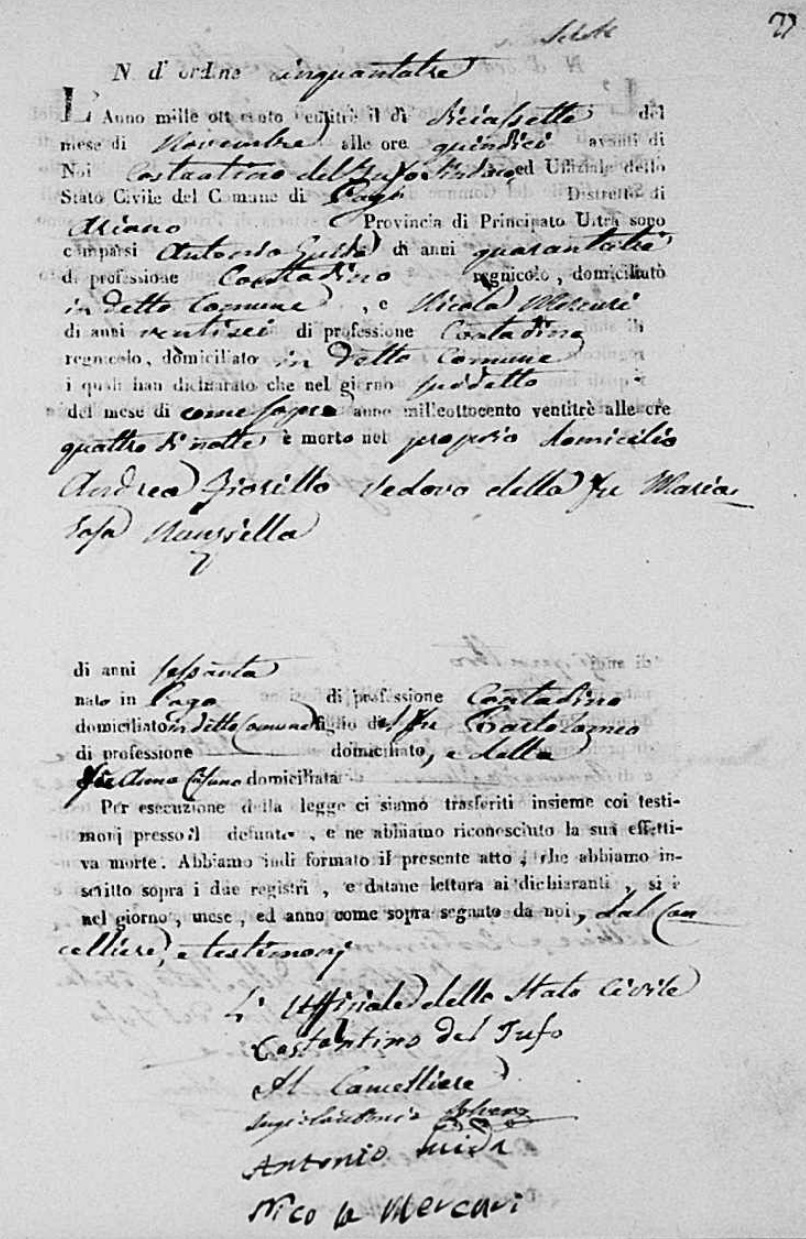 27
N d' ordine cinquantatre
L'Anno mille ottocento ventitrè il dì diciassette del
mese di Novembre alle ore quindici avanti di
Noi Costantino del Tufo Sindaco, ed Uffiziale dello
Stato Civile del Comune di Pago Distretto di
Ariano Provincia di Principato Ultra sono
comparsi Antonio Guida di anni quarantatrè
di professione Contadino regnicolo, domiciliato
in detto Comune, e Nicola Mercuri
di anni ventisei di professione Contadino
regnicolo, domiciliato in detto Comune
i quali han dichiarato che nel giorno sudetto
del mese di come sopra anno mill'eottocento ventitrè alle ore
quattro di notte è morto nel proprio domicilio
Andrea Fiorillo vedovo della fu Maria
di anni sessanta
nato in Pago di professione Contadino
domiciliato in detto Comune figlio del fu Bartolomeo
di professione domiciliato, e della
fu Anna domiciliata
Per esecuzione della legge ci siamo trasferiti insieme coi testi-
monj presso il defunto, e ne abbiamo riconosciuto la sua effetti-
va morte. Abbiamo indi formato il presente atto, che abbiamo in-
scritto sopra i due registri, e datane lettura ai dichiaranti, si è
nel giorno, mese, ed anno come sopra segnato da noi, dal Can
celliere, e testimonj
L' Uffiziale dello Stato Civile
Costantino del Tufo
Il Cancelliere
Antonio Guida
Nicola Mercuri